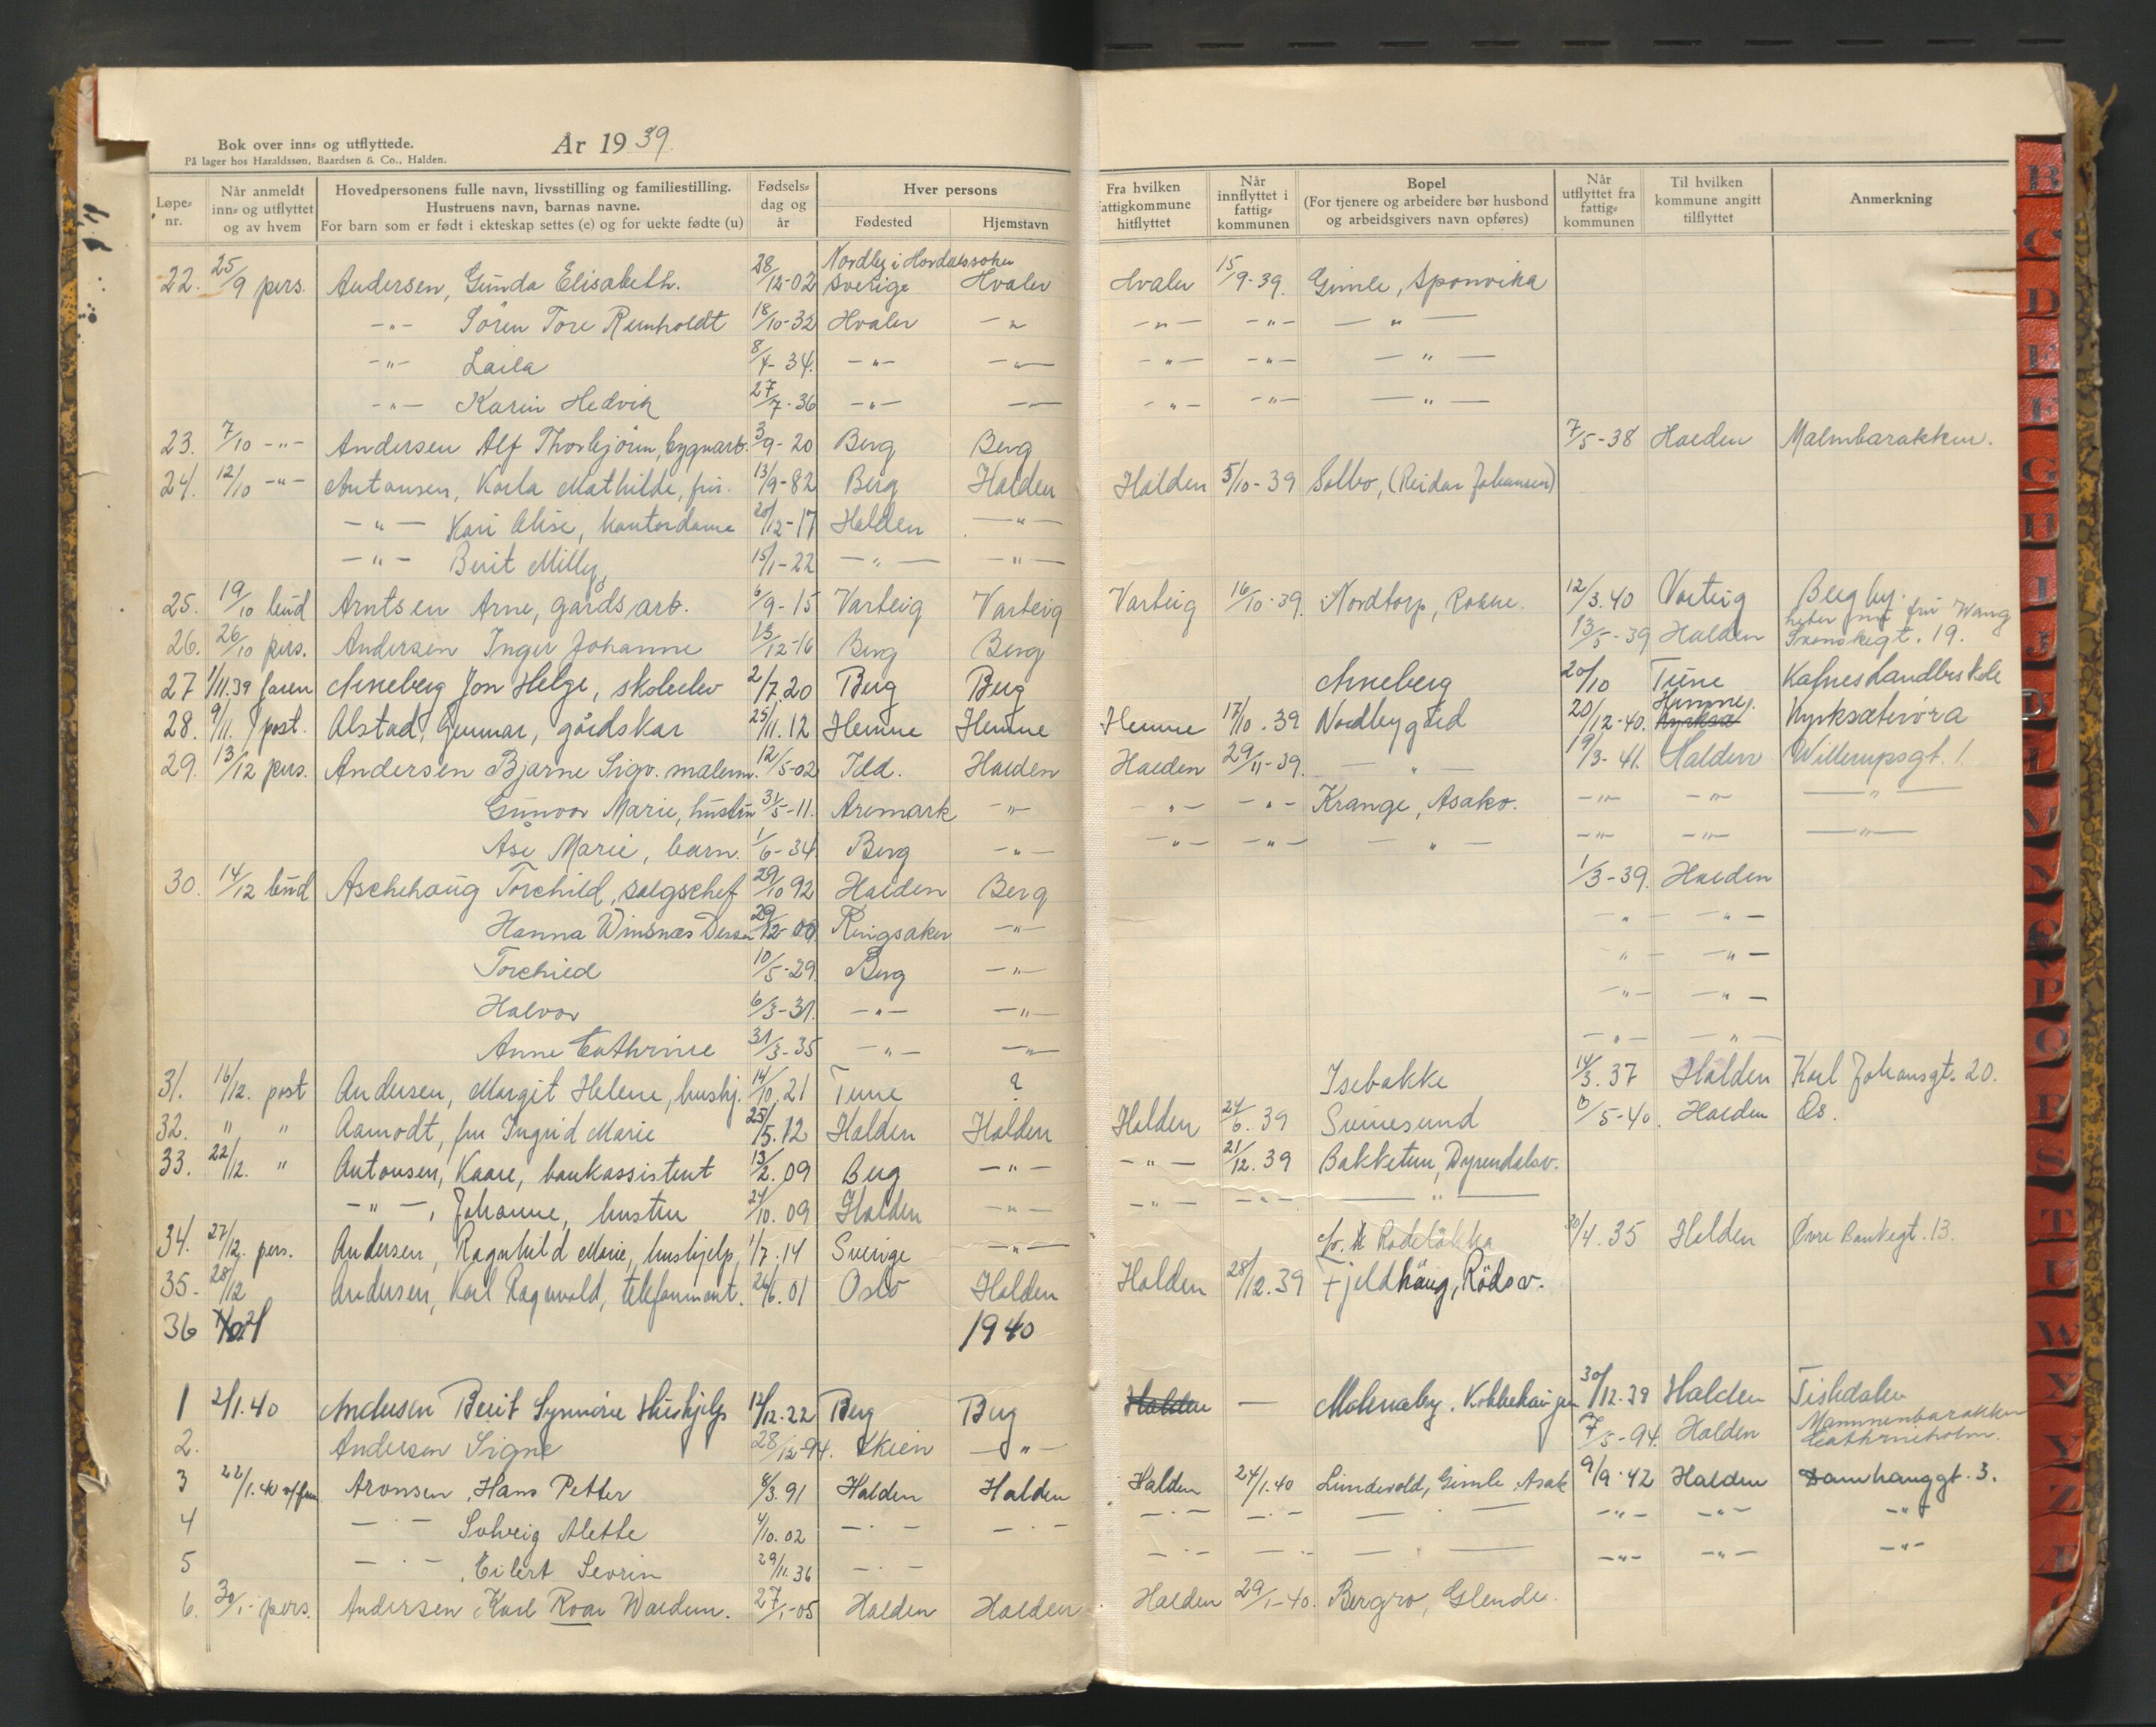 Bok over inn- og utflyttede.
På lager hos Haraldssøn, Baardsen & Co., Halden.
År 1939.
Løpe-nr. | Når anmeldt inn- og utflyttet og av hvem | Hovedpersonens fulle navn, livsstilling og familiestilling. Hustruens navn, barnas navne. For barn som er født i ekteskap settes (e) og for uekte fødte (u) | Fødsels-dag og år | Hver persons | Fødested | Hjemstavn | Fra hvilken fattigkommune hitflyttet | Når innflyttet i fattig-kommunen | Bopel (For tjenere og arbeidere bør husbond og arbeidsgivers navn opføres) | Når utflyttet fra fattig-kommunen | Til hvilken kommune angitt tilflyttet | Anmerkning
22. 25/9 pers. Andersen, Gunda Elisabeth. 28/12-02 Nordby i Sverige Hvaler Hvaler 15/9-39. Gimle, Sponvika
-"- Søren Tore Reinholdt 18/10-32 Hvaler -"- -"- -"- -"-
-"- Laila 8/4-34. -"- -"- -"- -"- -"-
-"- Karin Hedvik 27/7-36 -"- -"- -"- -"- -"-
23. 7/10 -"- Andersen Alf Thorbjørn, bygnarb. 3/9-20 Berg Berg 7/5-38 Halden Malmbarakken.
24. 12/10 -"- Antonsen, Karla Mathilde, fru. 13/9-82 Berg Halden Halden 5/10-39 Solbo, (Reidar Johansen)
-"- Kari Alise, kontordame 20/12-17 Halden -"-
-"- Berit Milly, 15/1-22 -"- -"-
25. 19/10 lensm Arntsen Arne, gårdsarb. 6/9-15 Varteig Varteig Varteig 16/10-39. Nordtorp, Rokke. 12/3.40 Varteig Bergby.
26. 26/10 pers. Andersen Inger Johanne 13/12-16 Berg Berg 13/5-39 Halden heter nu fru Wang Svenskegt. 19.
27 1/11.39 faren Anneberg Jon Helge, skoleelev 2/7.20 Berg Berg Anneberg 20/10 Tune Kalnes Landbr skole
28. 9/11. post. Alstad, Gunnar, gårdskar 25/11.12 Hemne Hemne Hemne 17/10.39 Nordbygård 20/12-40. Hemne. Kyrksæterøra
29. 13/12 pers. Andersen Bjarne Sigv. malerm. 12/5-02 Idd. Halden Halden 29/11-39. -"- 19/3-41. Halden Willerupsgt. 1.
Gunvor Marie, hustru 31/5-11. Aremark -"- -"- -"- Krange, Asak. -"- -"- -"-
Åse Marie, barn. 1/6-34. Berg -"- -"- -"- -"- -"- -"- -"-
30. 14/12 lensm Aschehoug Torchild, salgschef 29/10 92 Halden Berg 1/3-39. Halden
Hanna Winsnæs 29/12-00. Ringsaker -"- -"- -"-
Torchild 10/5-29. Berg -"- -"- -"-
Halvor 6/3-31. -"- -"- -"- -"-
Anne Cathrine 31/3-35 -"- -"- -"- -"-
31. 16/12. post Andersen, Margit Helene, hushj. 14/10.21 Tune ? Isebakke 14/3.37 Halden Karl Johansgt. 20.
32. " " Aamodt, fru Ingrid Marie 25/5.12 Halden Halden Halden 24/6.39 Svinesund 6/5-40. Halden Os.
33. 22/12. " Antonsen, Kaare, bankassistent 13/2.09 Berg -"- -"- 21/12.39 Bakketun, Dyrendalsv.
-"-, Johanne, hustru 24/10.09 Halden -"- -"- -"- -"-
34. 27/12. pers. Andersen, Ragnhild Marie, hushjelp, 1/7.14 Sverige -"- Rødeløkka 20/4.35 Halden Øvre Bankegt. 13.
35. 28/12 Andersen, Karl Ragnvald, telefonmont. 26/6.01 Oslo Halden Halden 28/12.39 Fjeldhaug, Rødsv.
36 1940
1 2/1.40 Andersen Berit Synnøve Hushjelp 12/12.22 Berg Berg Halden — Molenaby. 30/12.39 Halden Tistedalen
2. Andersen Signe 28/12-94. Skien -"- 7/5-94. Halden Mannenbarakken Cathrineholm.
3 22/1.40 Aronsen, Hans Petter 8/3.91 Halden Halden Halden 24/1.40 Lundevold, Gimle, Asak 9/9-42 Halden Damhauggt. 3.
4 -"- Solveig Alette 4/10.02 -"- -"- -"- -"- -"- -"- -"- -"-
5 -"- , Eilert Sevrin 29/11.36 -"- -"- -"- -"- -"- -"- -"-
6. 30/1- pers. Andersen Karl Roar Waldem. 27/1-05 Halden Halden Halden 29/1-40. Bergro, Glende.